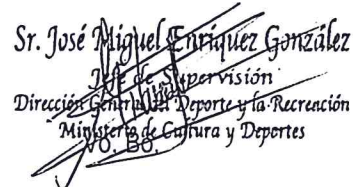 Sr. José Miguel Enríquez González
Jefe de Supervisión
Dirección General del Deporte y la Recreación
Ministerio de Cultura y Deportes
Vo. Bo.